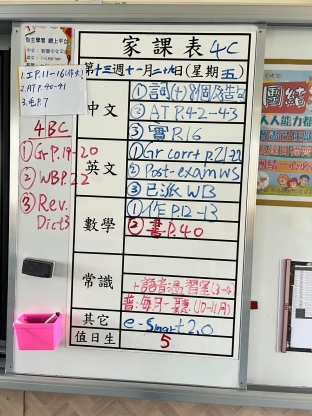 自主學習 網上平台
1. 工P.11-16(作文)
2. AT P.40-41
3. 毛P.7
4BC
① Gr P.19-20
② WB P.22
③ Rev. Dict3
家課表 4C
第十三週十一月二十九日(星期五)
中文
① 詞(十)8個及造句
② AT P.42-43
③ 實P.16
英文
① Gr corr+ p.21-22
② Post-exam WS
③ 已派 WB
數學
① 作P.12-13
② 書P.40
常識
普:每月一聽(10-11月)
其它
e-Smart 2.0
值日生
5
團結
人人能力都